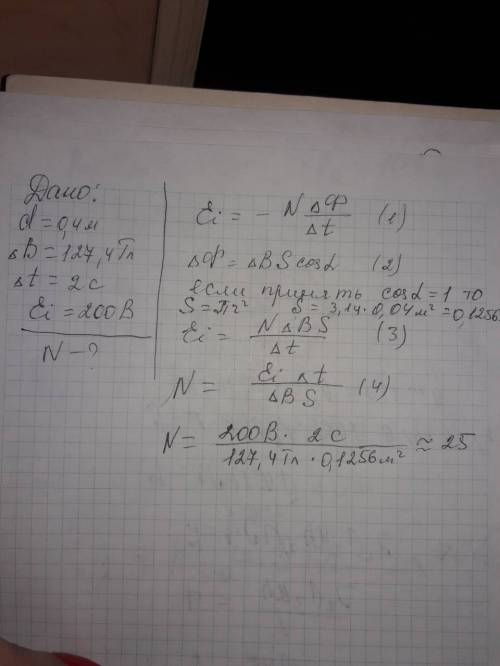 Дано:
d = 0,4 м
ΔB = 127,4 Тл
Δt = 2 с
Ɛi = 200 В
N - ?
Ɛi = - N ΔФ/Δt (1)
ΔФ = ΔB S cosα (2)
если принять cosα = 1 то
S = πr² S = 3,14 · 0,04 м² = 0,1256
Ɛi = NΔBS/Δt (3)
N = Ɛi Δt/ΔBS (4)
N = 200 В · 2 с/127,4 Тл · 0,1256 м² ≈ 25